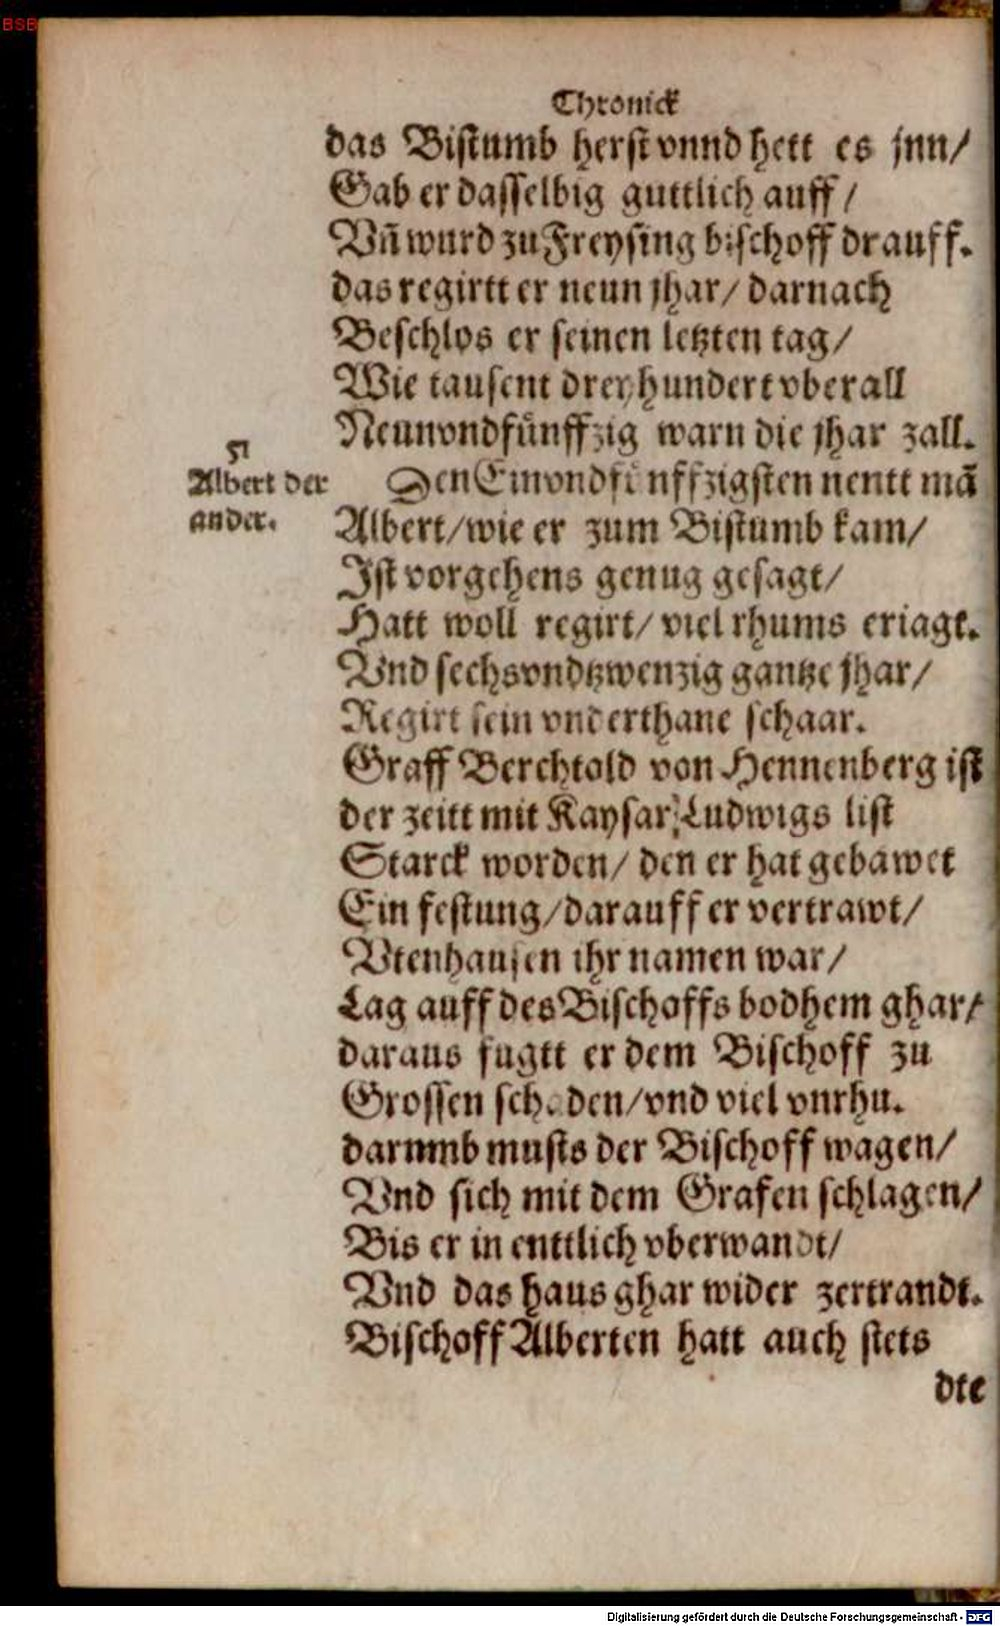 BSB
Chronick
das Bistumb herst vnnd hett es jnn/
Gab er dasselbig guttlich auff/
Vñ wurd zu Freysing bischoff drauff.
das regirtt er neun jhar/ darnach
Beschlos er seinen letzten tag/
Wie tausent dreyhundert vberall
Neunvndfünffzig warn die jhar zall.
51
Albert der
ander.
Den Einvndfünffzigsten nentt mã
Albert/ wie er zum Bistumb kam/
Ist vorgehens genug gesagt/
Hatt woll regirt/ viel rhums eriagt.
Vnd sechsvndtzwenzig gantze jhar/
Regirt sein vnderthane schaar.
Graff Berchtold von Hennenberg ist
der zeitt mit Kaysar Ludwigs list
Starck worden/ den er hat gebawet
Ein festung/ darauff er vertrawt/
Vtenhausen ihr namen war/
Lag auff des Bischoffs bodhem ghar/
daraus fugtt er dem Bischoff zu
Grossen schaden/ vnd viel vnrhu.
darumb musts der Bischoff wagen/
Vnd sich mit dem Grafen schlagen/
Bis er in enttlich vberwandt/
Vnd das haus ghar wider zertrandt.
Bischoff Alberten hatt auch stets
die
Digitalisierung gefördert durch die Deutsche Forschungsgemeinschaft - DFG